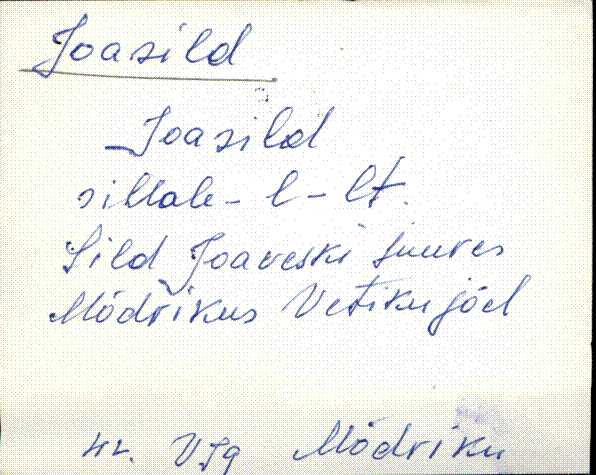 Joasild
Joasild
sillale - l - lt.
Sild Joaveski juures
Mõdrikus Vetiku jõel
VJg Mõdriku